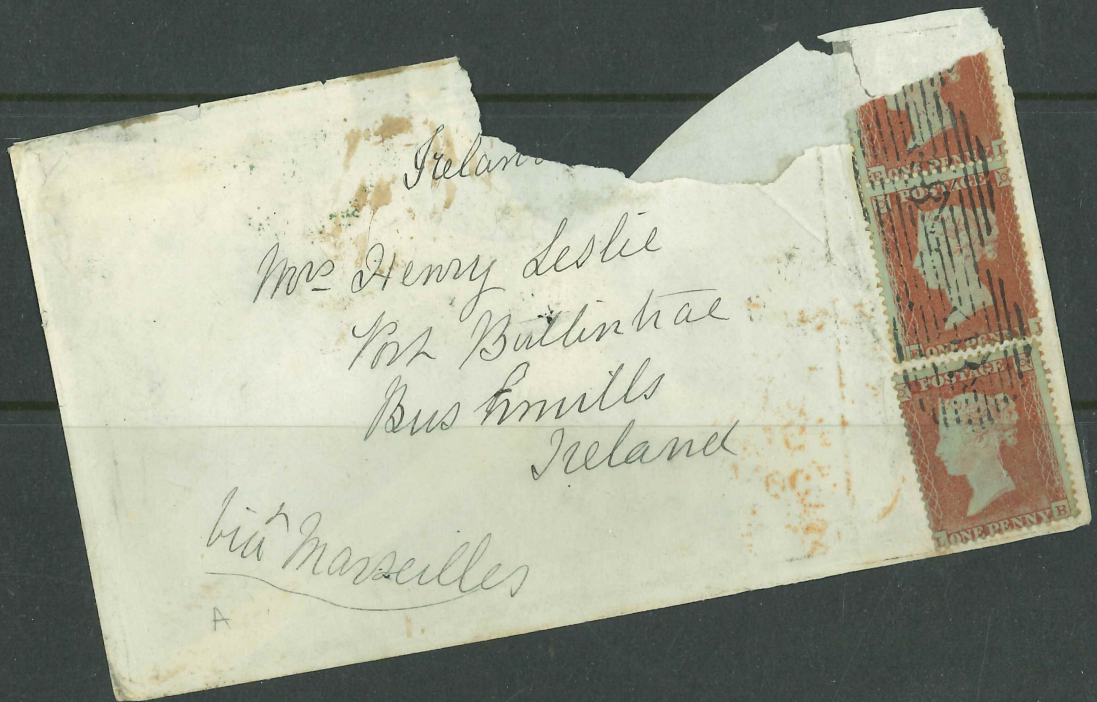 Irelan
Mrs Henry Leslie
Port Ballintrae
Bushmills
Ireland
viâ Marseilles
A
ONE PENNY
POSTAGE
ONE PENNY
POSTAGE
L ONE PENNY B